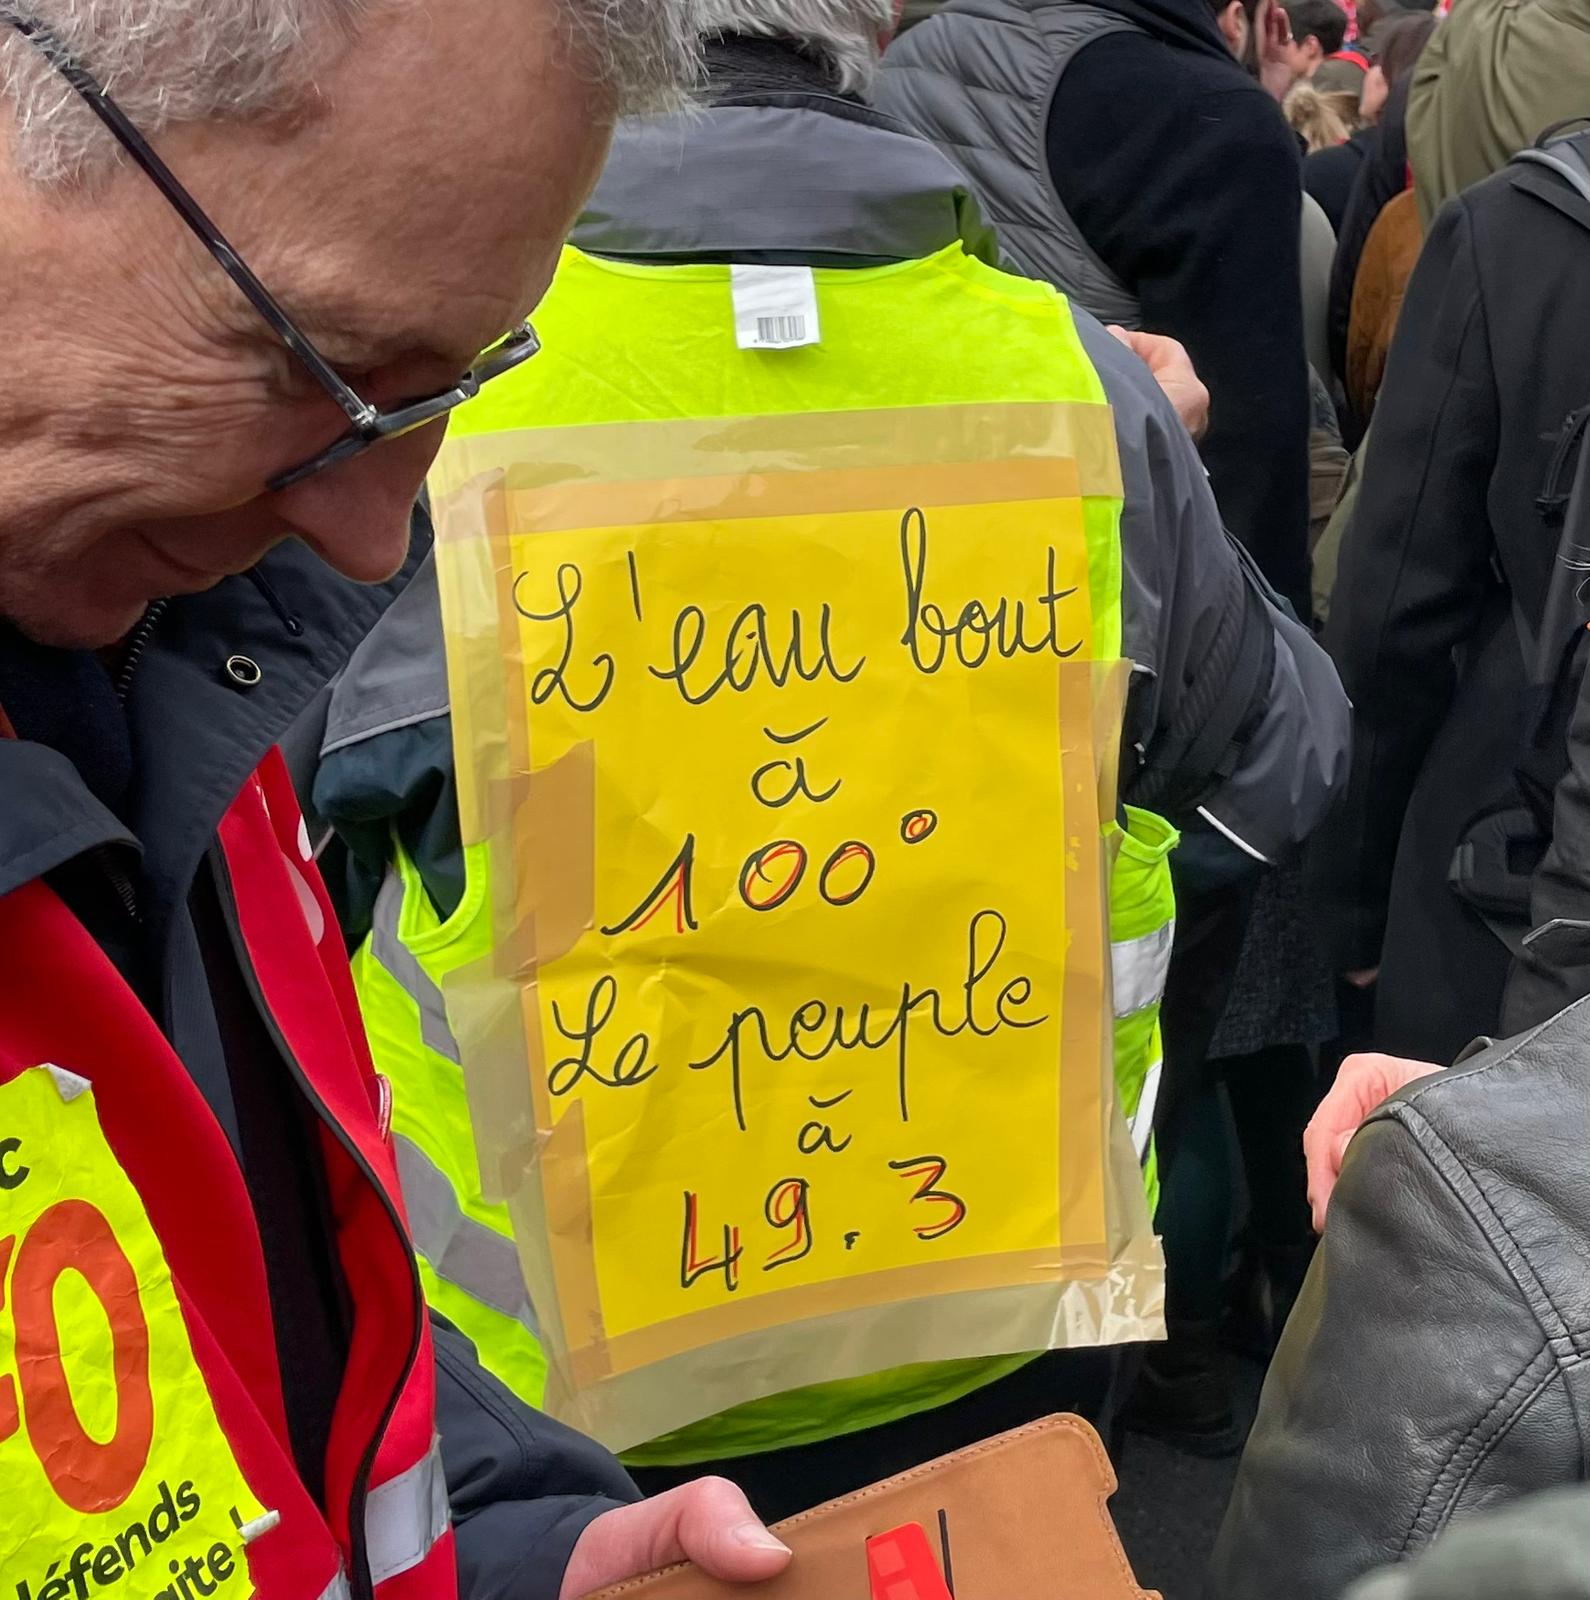 L'eau bout
à
100°
Le peuple
à
49.3
FO
défends